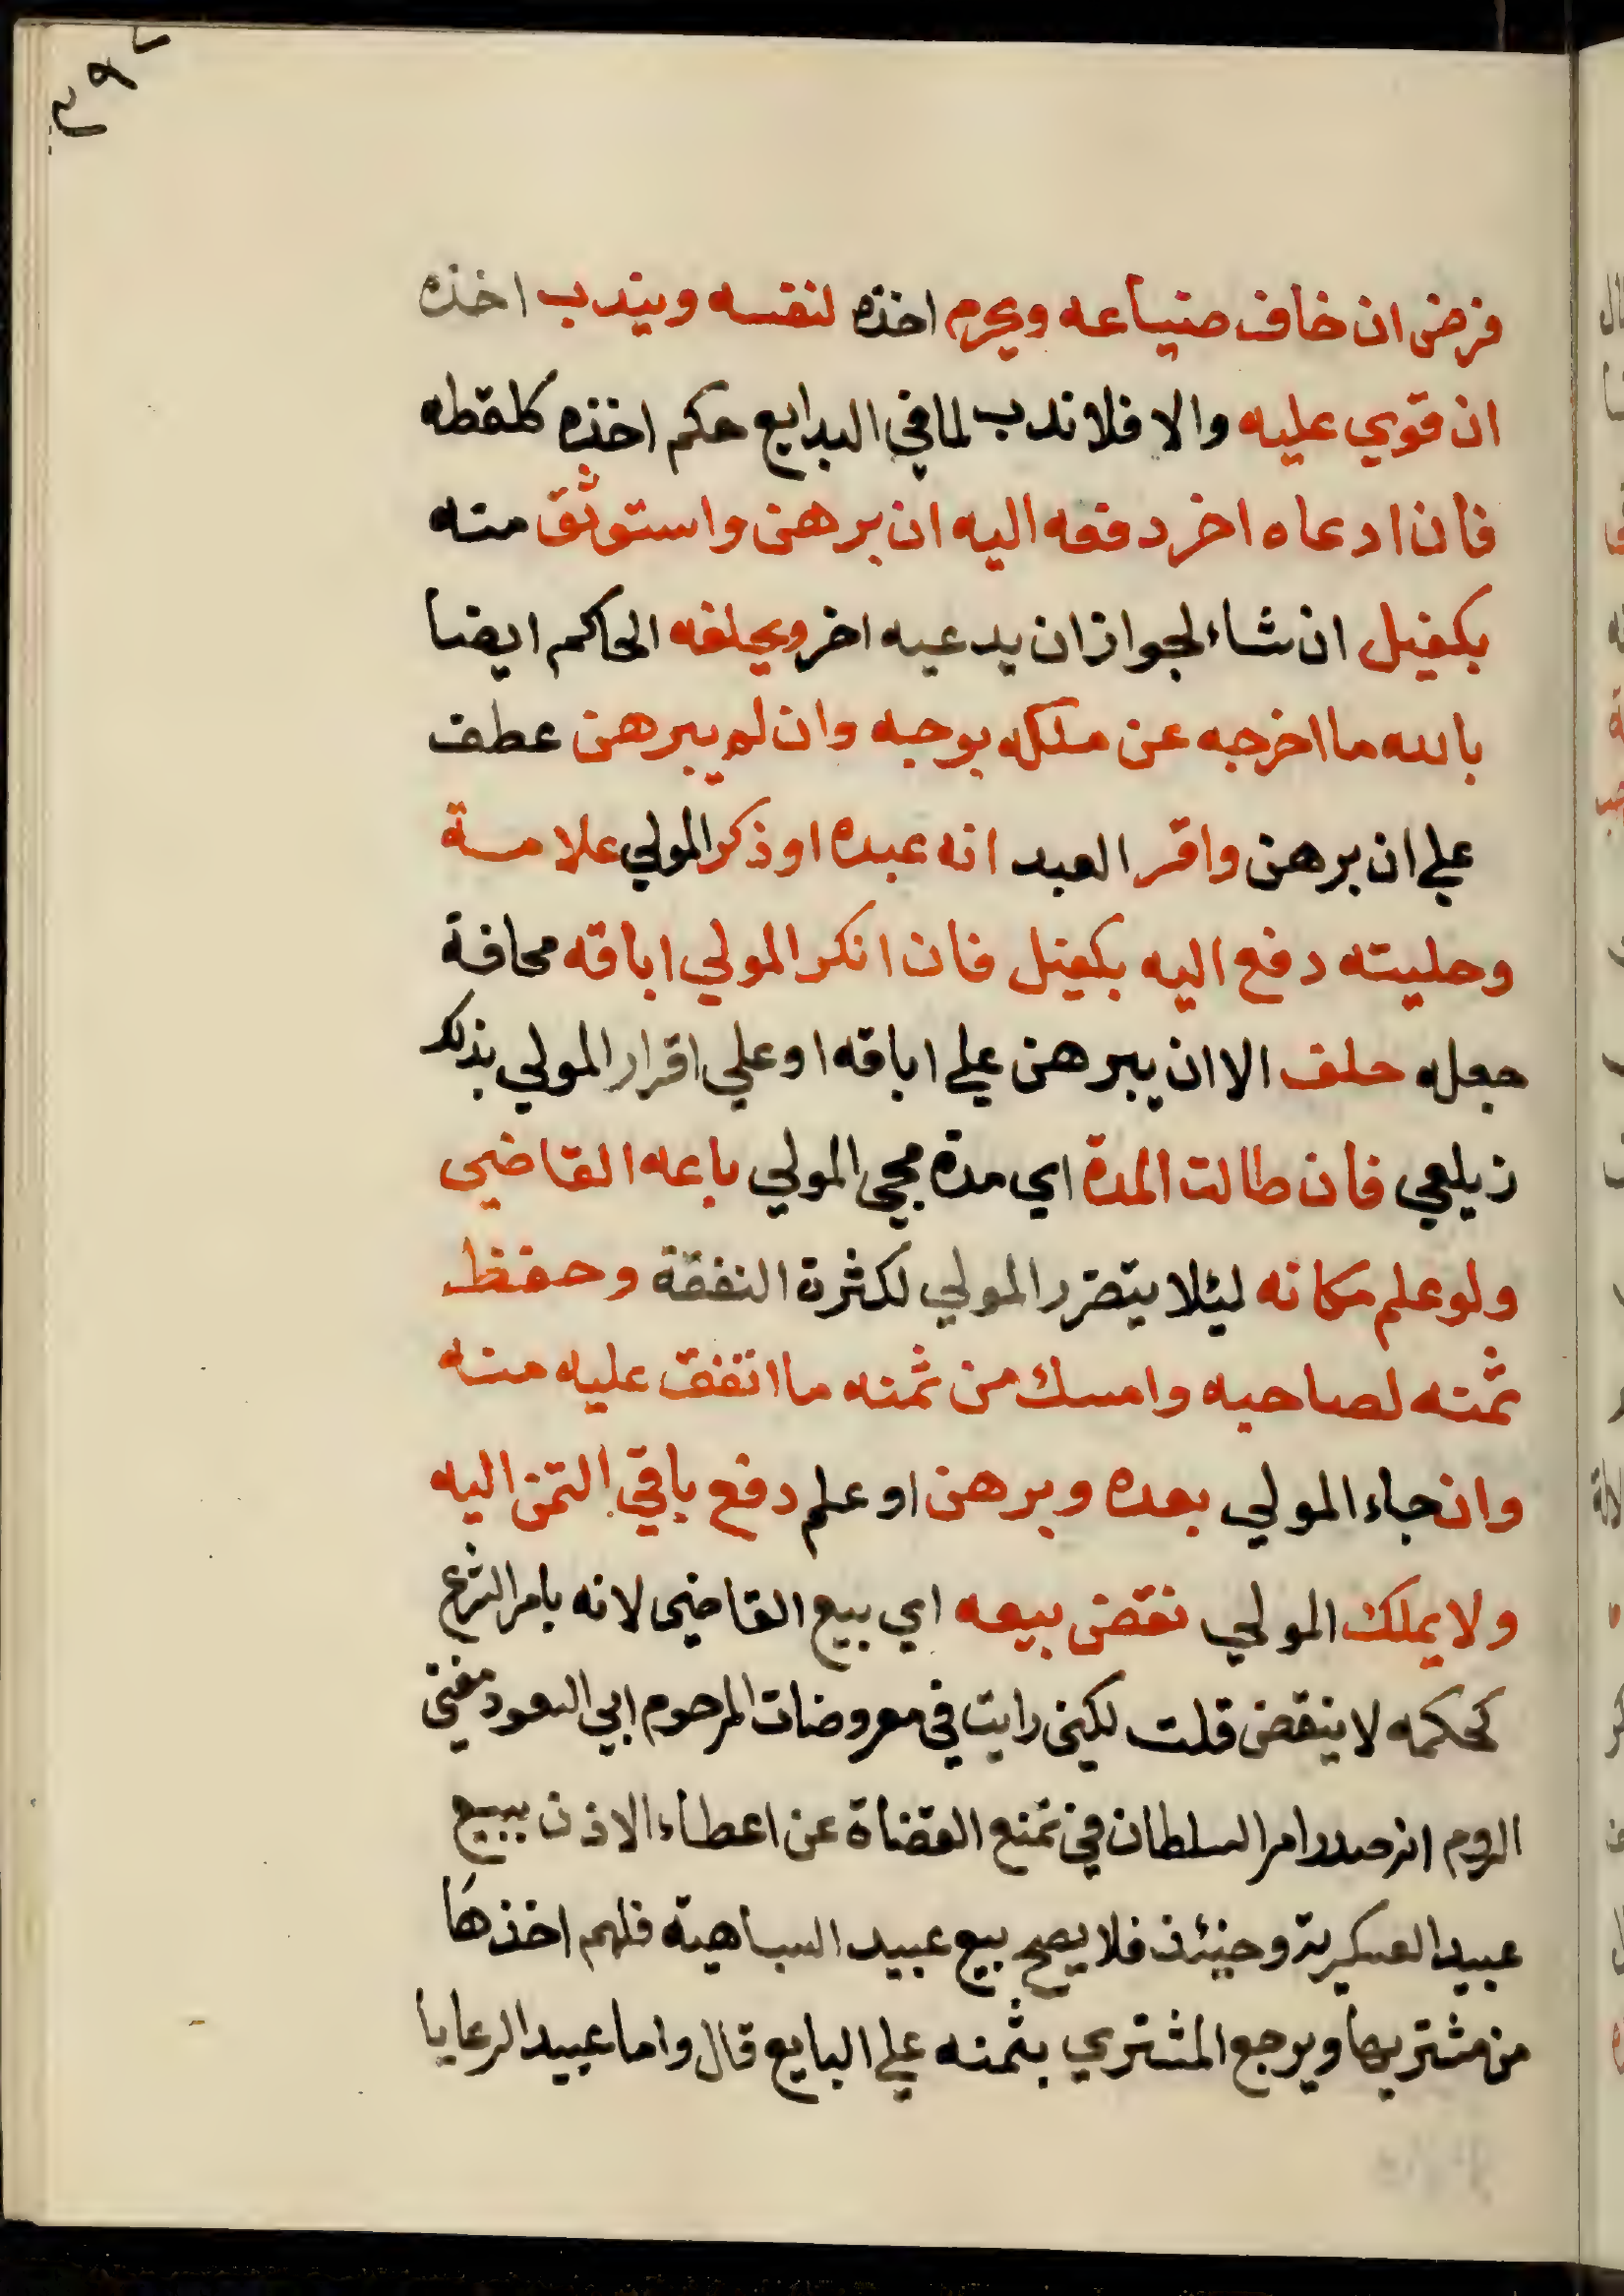 فرض ان خاف ضياعه ويحرم اخذه لنفسه ويندب اخذه
ان قوي عليه والا فلا ندب لما في البدايع حكم اخذه كلقطه
فان ادعاه اخر دفعه اليه ان برهن واستوثق منه
بكفيل ان شاء لجواز ان يدعيه اخر ويحلفه الحاكم ايضا
بالله ما اخرجه عن ملكه بوجه وان لم يبرهن عطف
علي ان برهن واقر العبد انه عبده او ذكر المولي علامة
وحليته دفع اليه بكفيل فان انكر المولي اباقه مخافة
جعله حلف الا ان يبرهن علي اباقه او علي اقرار المولي بذلك
زيلعي فان طالت المدة اي مدة مجي المولي باعه القاضي
ولو علم مكانه ليئلا يتضرر المولي لكثرة النفقة وحفظ
ثمنه لصاحبه وامسك من ثمنه ما انفق عليه منه
وان جاء المولي بعده وبرهن او علم دفع باقي الثمن اليه
ولا يملك المولي نقض بيعه اي بيع القاضي لانه بامر الشرع
كحكمه لا ينقض قلت لكني رايت في معروضات المرحوم ابي السعود مفتي
الروم انه صدر امر السلطان في تمنع القضاة عن اعطاء الاذن ببيع
عبيد العسكرية وحينئذ فلا يصح بيع عبيد السباهية فلهم اخذها
من مشتريها ويرجع المشتري بثمنه علي البايع قال واما عبيد الرعايا